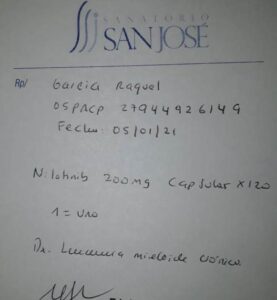 SANATORIO
SAN JOSÉ
Rp/
Garcia Raquel
OSPACP 27944926149
Fecha 05/01/21
Nilotinib 200mg Capsulas x120
1 = Uno
Dx. Leucemia mieloide crónica